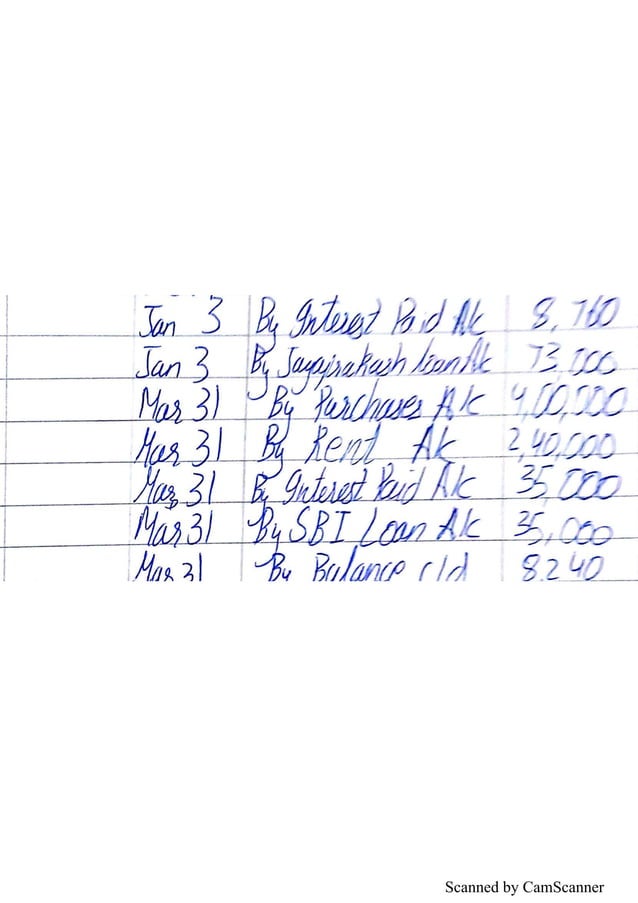 Jan 3 By Interest Paid A/c 8,760
Jan 3 By Jayaprakash loan A/c 73,000
Mar 31 By Purchases A/c 4,00,000
Mar 31 By Rent A/c 2,40,000
Mar 31 By Interest Paid A/c 35,000
Mar 31 By SBI Loan A/c 35,000
Mar 31 By Balance c/d 8240
Scanned by CamScanner